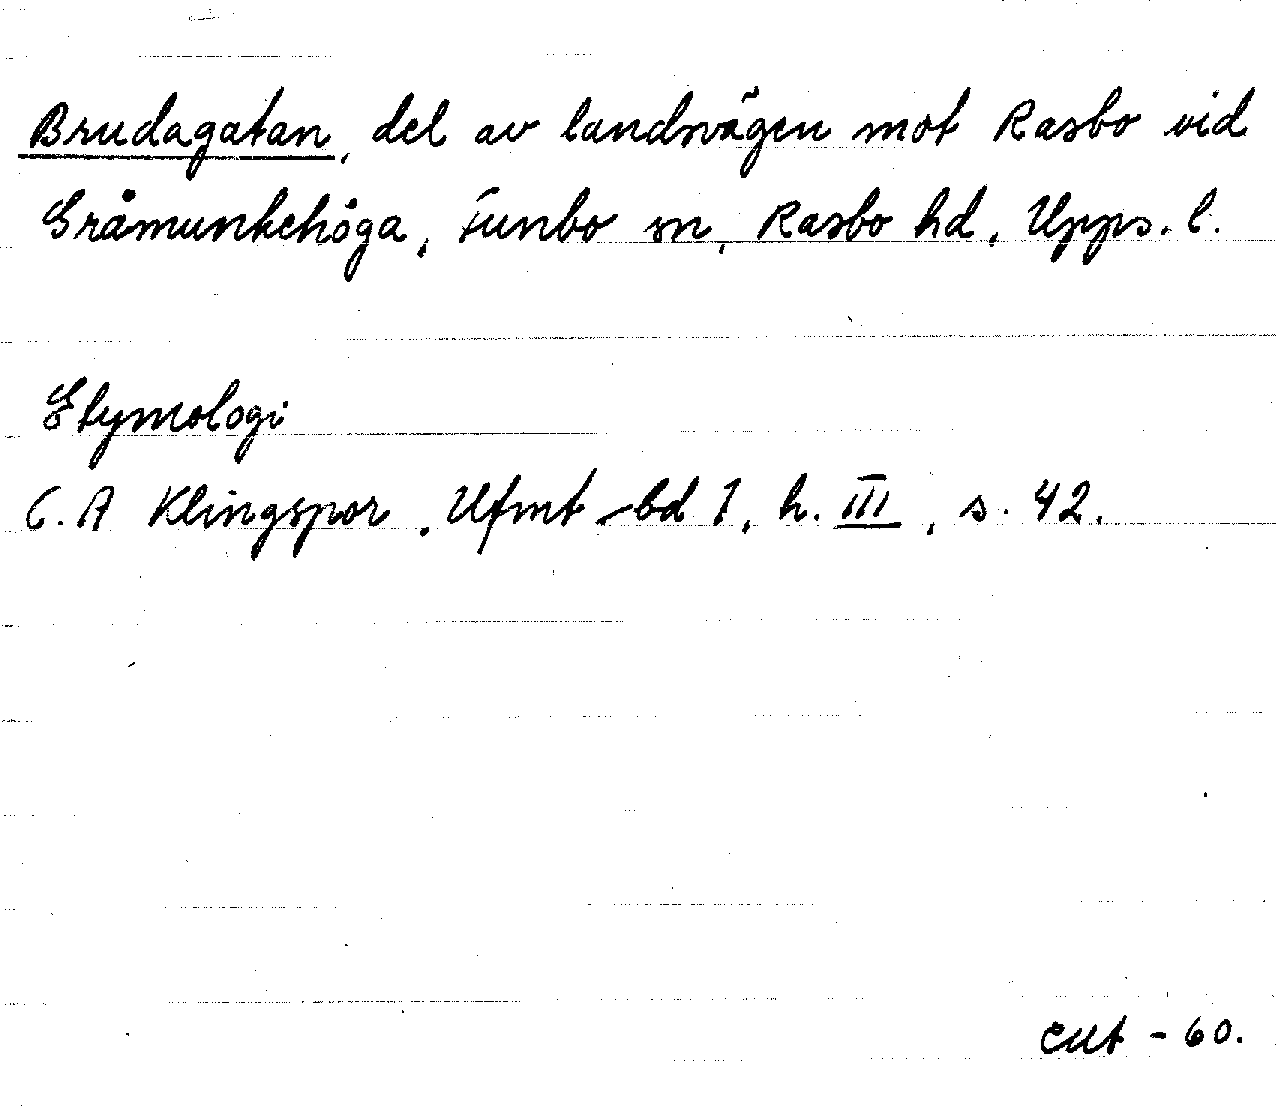 Brudagatan, del av landsvägen mot Rasbo vid
Gråmunkehöga, Funbo sn, Rasbo hd, Upps. l.
Etymologi
C. A Klingspor, Ufmt bd 1, h. III, s. 42.
- 60.